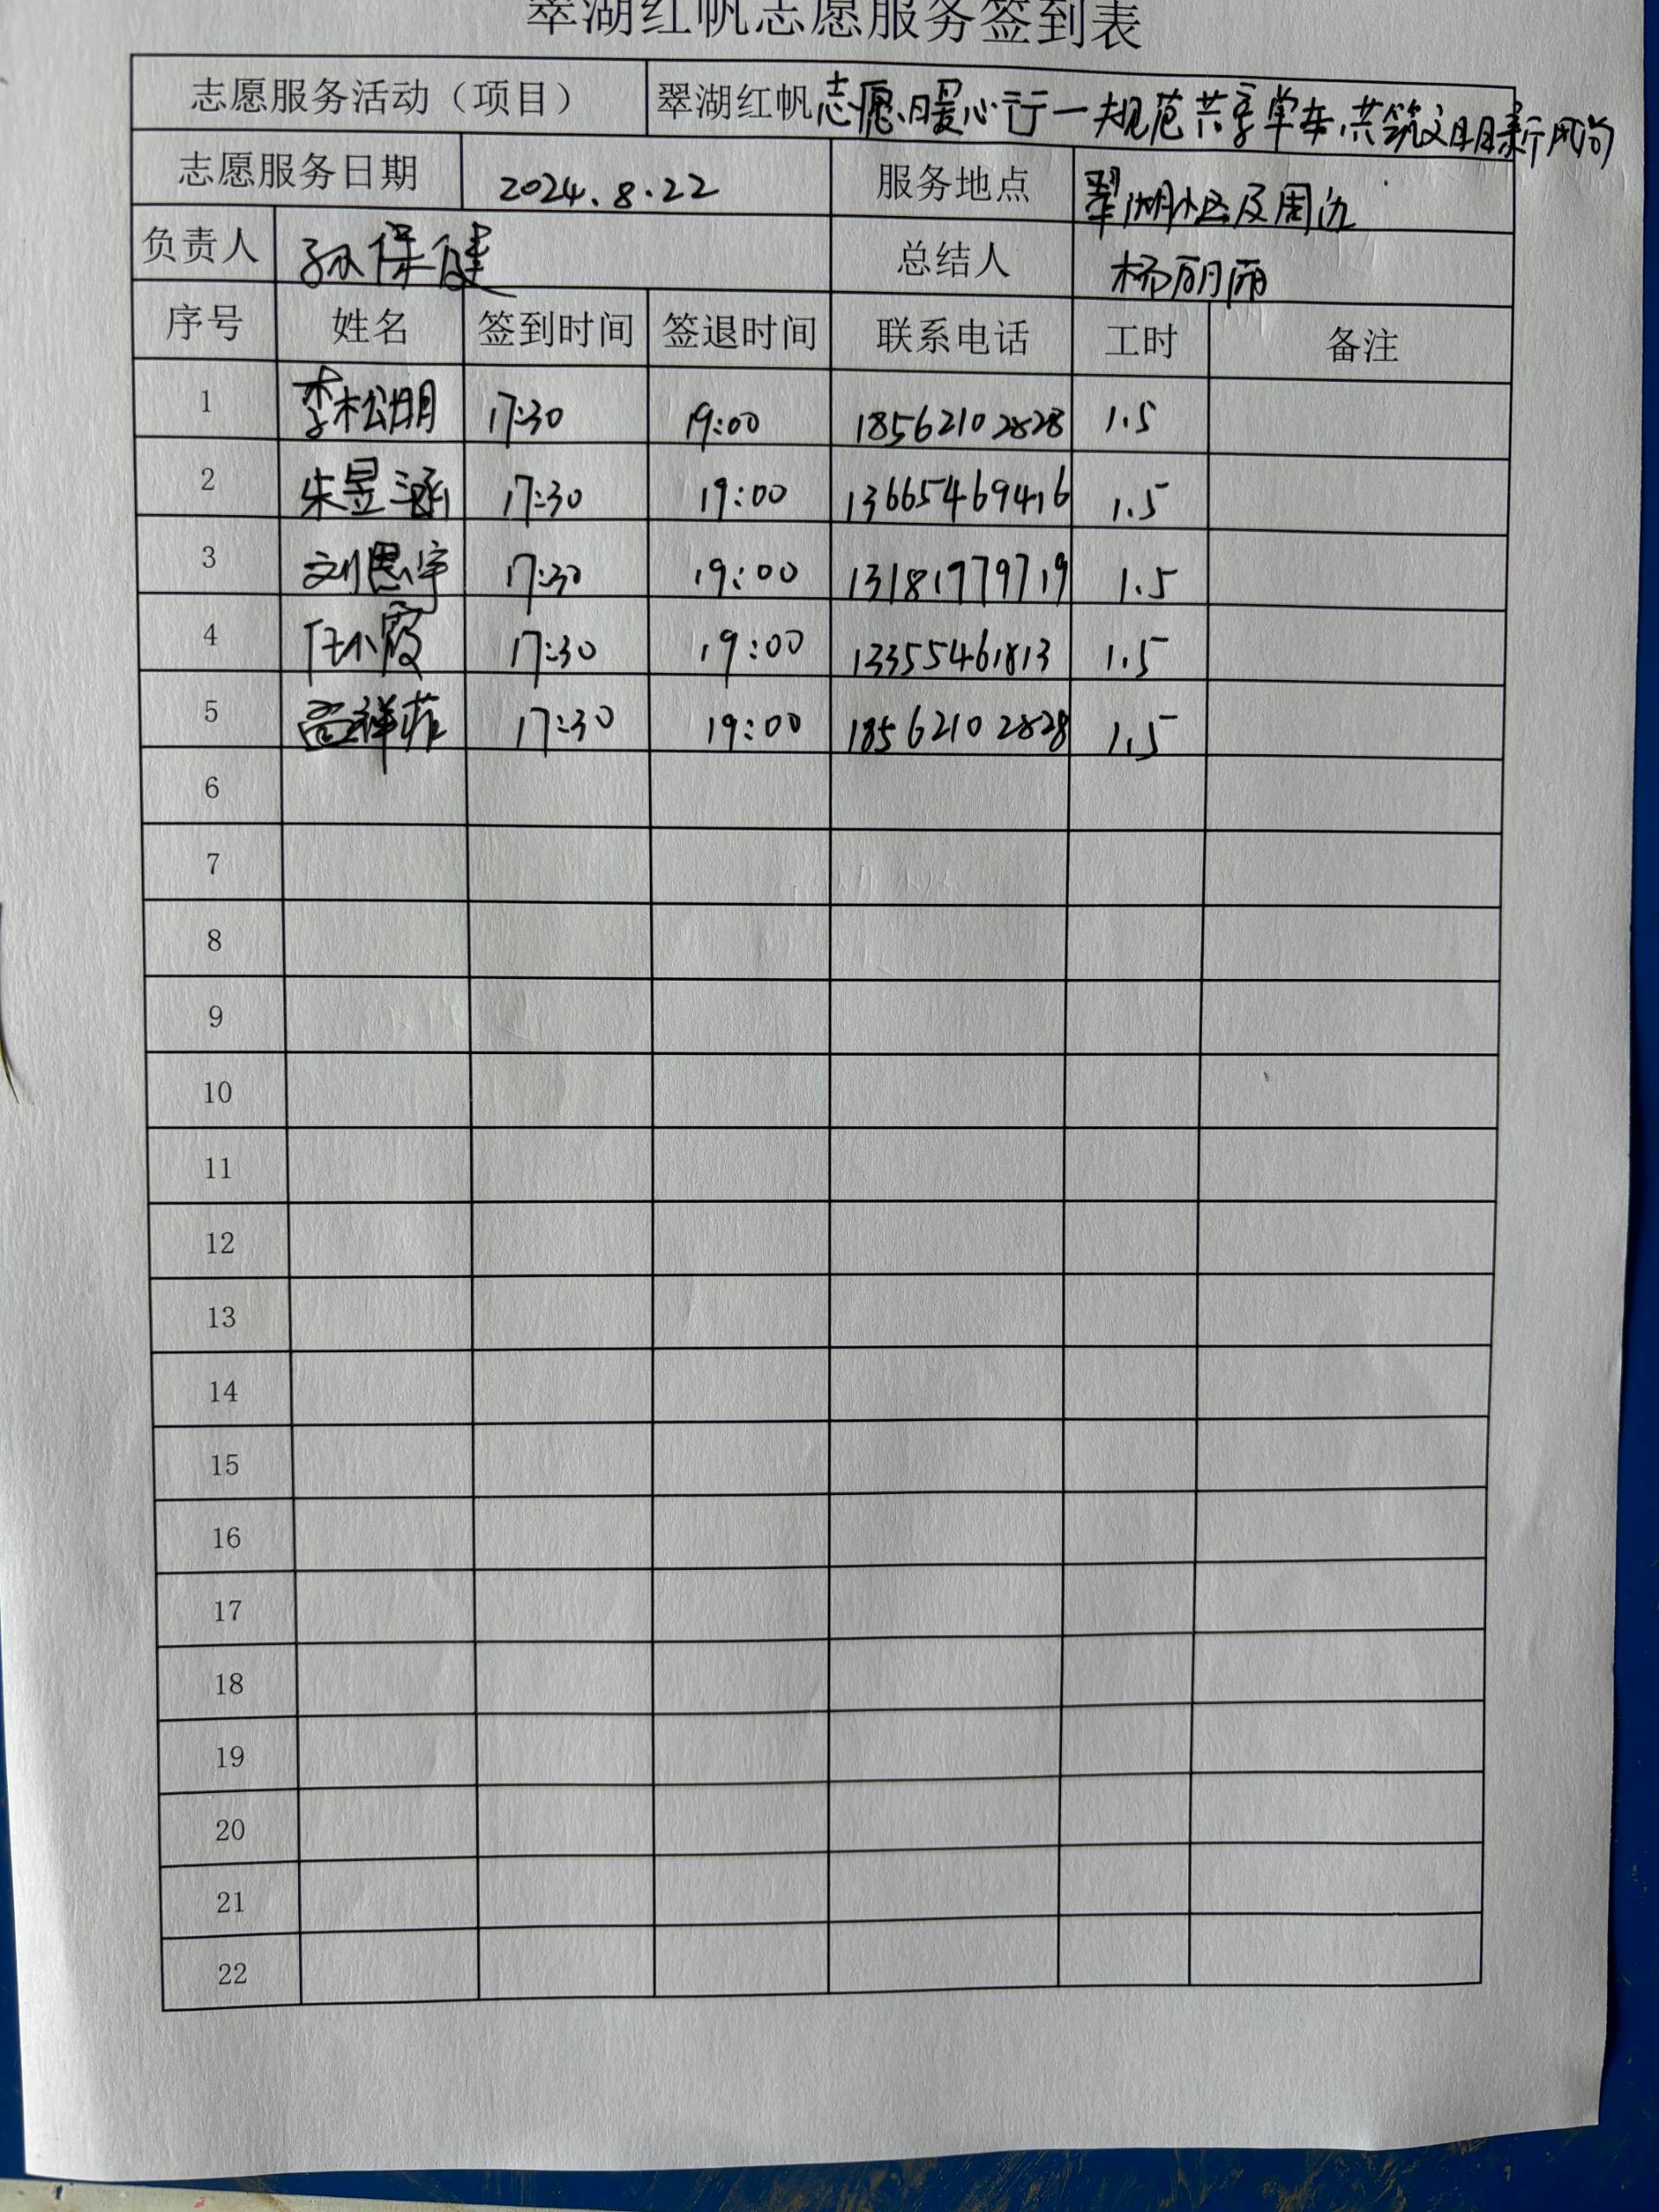 翠湖红帆志愿服务签到表
志愿服务活动（项目） 翠湖红帆志愿暖心行一规范共享单车,共筑文明新风尚
志愿服务日期 2024.8.22 服务地点 翠湖小区及周边
负责人 孙保健 总结人 杨丽丽
序号 姓名 签到时间 签退时间 联系电话 工时 备注
1 李松明 17:30 19:00 18562102828 1.5
2 朱昱涵 17:30 19:00 13665469416 1.5
3 刘恩宇 17:30 19:00 13181779719 1.5
4 任小霞 17:30 19:00 13355461813 1.5
5 17:30 19:00 18562102828 1.5
6
7
8
9
10
11
12
13
14
15
16
17
18
19
20
21
22